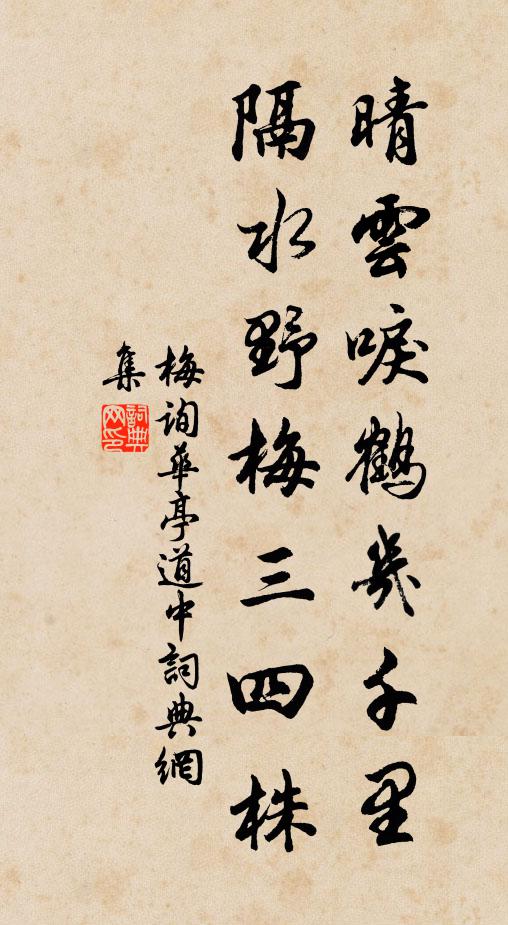 晴雲唳鶴幾千里
隔水野梅三四株
梅詢華亭道中詞典網
集
詞典网印